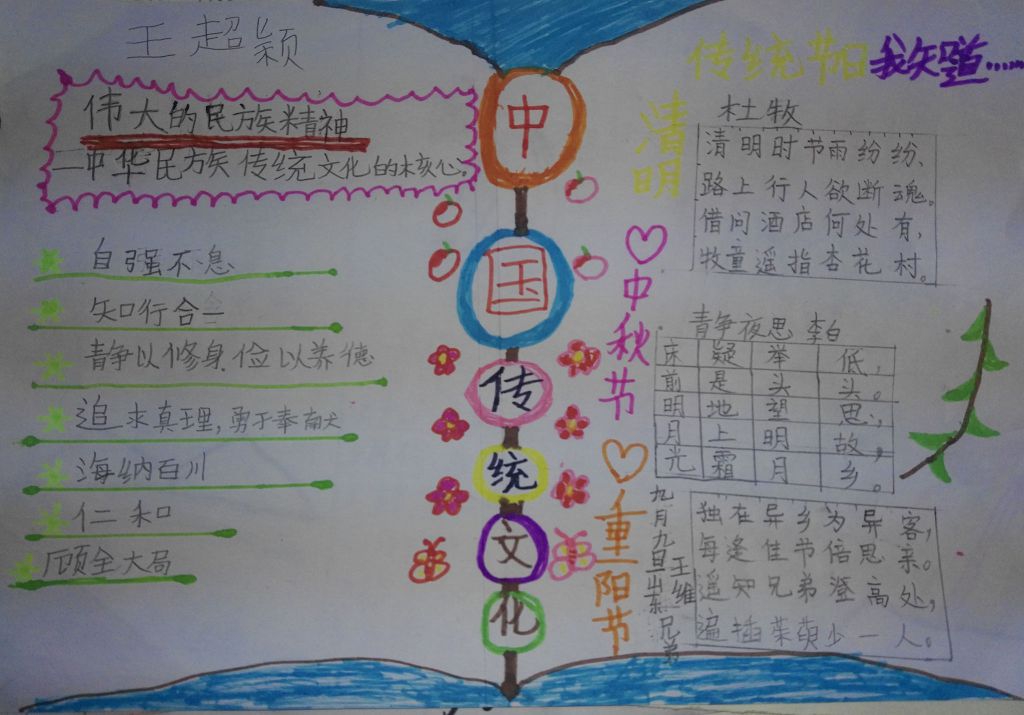 王超颖
伟大的民族精神
—中华民族传统文化的核心。
自强不息
知行合一
静以修身俭以养德
追求真理,勇于奉献
海纳百川
仁和
顾全大局
中国传统文化
传统节日我知道……
清明
杜牧
清明时节雨纷纷、
路上行人欲断魂。
借问酒店何处有,
牧童遥指杏花村。
中秋节
静争夜思 李白
床前明月光
疑是地上霜
举头望明月
低头。思故乡。
重阳节
九月九日山东兄弟
王维
独在异乡为异客,
每逢佳节倍思亲。
遥知兄弟登高处,
遍插茱萸少一人。